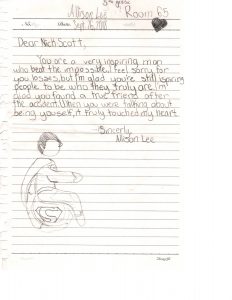 5th grade
Allison Lee
Room R5
Sept 26, 2011
Dear Nick Scott,
You are a very inspiring man
who beat the impossible. I feel sorry for
you losses, but I'm glad you're still inspiring
people to be who they truly are. I'm
glad you found a true friend after
the accident. When you were talking about
being youself, it truly touched my heart.
-Sincerly,
Allison Lee
S